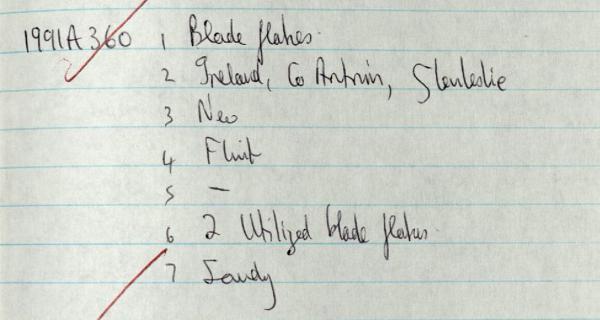 1991A360 1 Blade flakes.
2 Ireland, Co Antrim, Glenleslie
3 Neo
4 Flint
5 —
6 2 Utilized blade flakes.
7